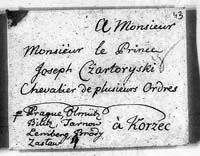 43
A Monsieur
Monsieur le Prince
Joseph Czartoryski
Chevalier de plusieurs Ordres
Prague Olmütz
Bilitz Tarnow
Lemberg Brody
Zaslau
à Korzec